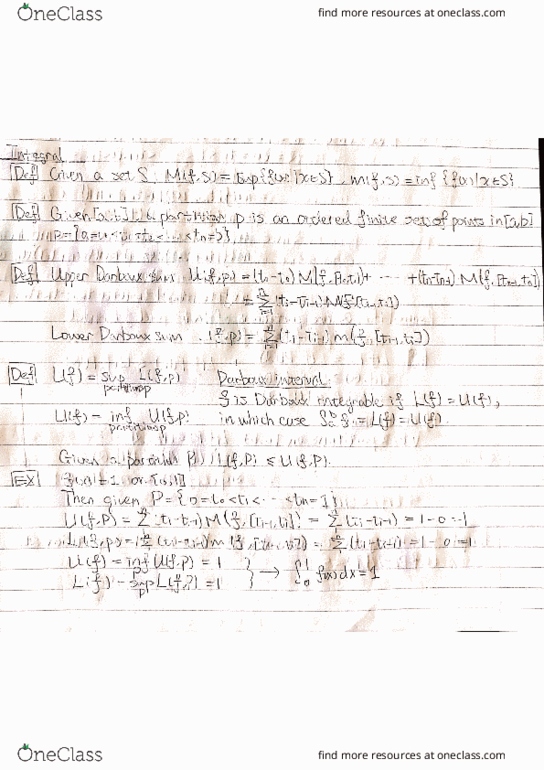 OneClass
find more resources at oneclass.com
Integral
Def Given a set S, M(f,S) = sup{f(x) | x∈S}, m(f,S) = inf{f(x) | x∈S}
Def Given [a,b], a partition p is an ordered finite set of points in [a,b]
p = {a = t₀ < t₁ < t₂ < ... < tₙ = b}
Def Upper Darboux sum U(f,p) = (t₁-t₀) M(f,[t₀,t₁]) + ... + (tₙ-tₙ₋₁) M(f,[tₙ₋₁,tₙ])
= Σ (tᵢ-tᵢ₋₁) M(f,[tᵢ₋₁,tᵢ])
Lower Darboux sum L(f,p) = Σ (tᵢ-tᵢ₋₁) m(f,[tᵢ₋₁,tᵢ])
Def L(f) = sup L(f,p) Darboux integral
partition p f is Darboux integrable if L(f) = U(f),
U(f) = inf U(f,p) in which case ∫ₐᵇ f = L(f) = U(f).
partition p
Given a partition P, L(f,P) ≤ U(f,P).
EX f(x)=1 on [0,1]
Then given P = {0 = t₀ < t₁ < ... < tₙ = 1}
U(f,P) = Σ (tᵢ-tᵢ₋₁) M(f,[tᵢ₋₁,tᵢ]) = Σ (tᵢ-tᵢ₋₁) = 1-0 = 1
L(f,p) = Σ (tᵢ-tᵢ₋₁) m(f,[tᵢ₋₁,tᵢ]) = Σ (tᵢ-tᵢ₋₁) = 1-0 = 1
U(f) = inf U(f,P) = 1
L(f) = sup L(f,P) = 1 } → ∫₀¹ f(x)dx = 1
OneClass
find more resources at oneclass.com